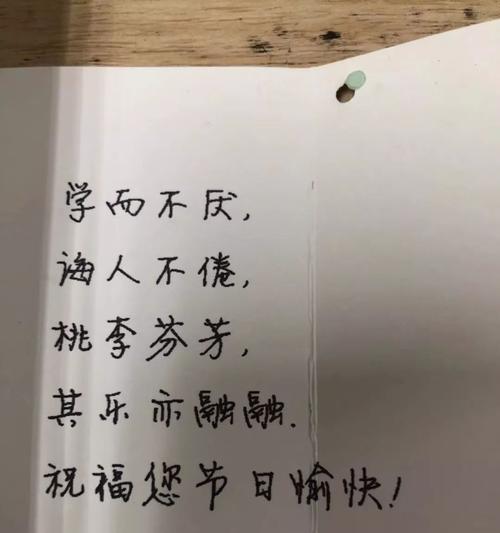 学而不厌,
诲人不倦,
桃李芬芳,
其乐亦融融.
祝福您节日愉快!